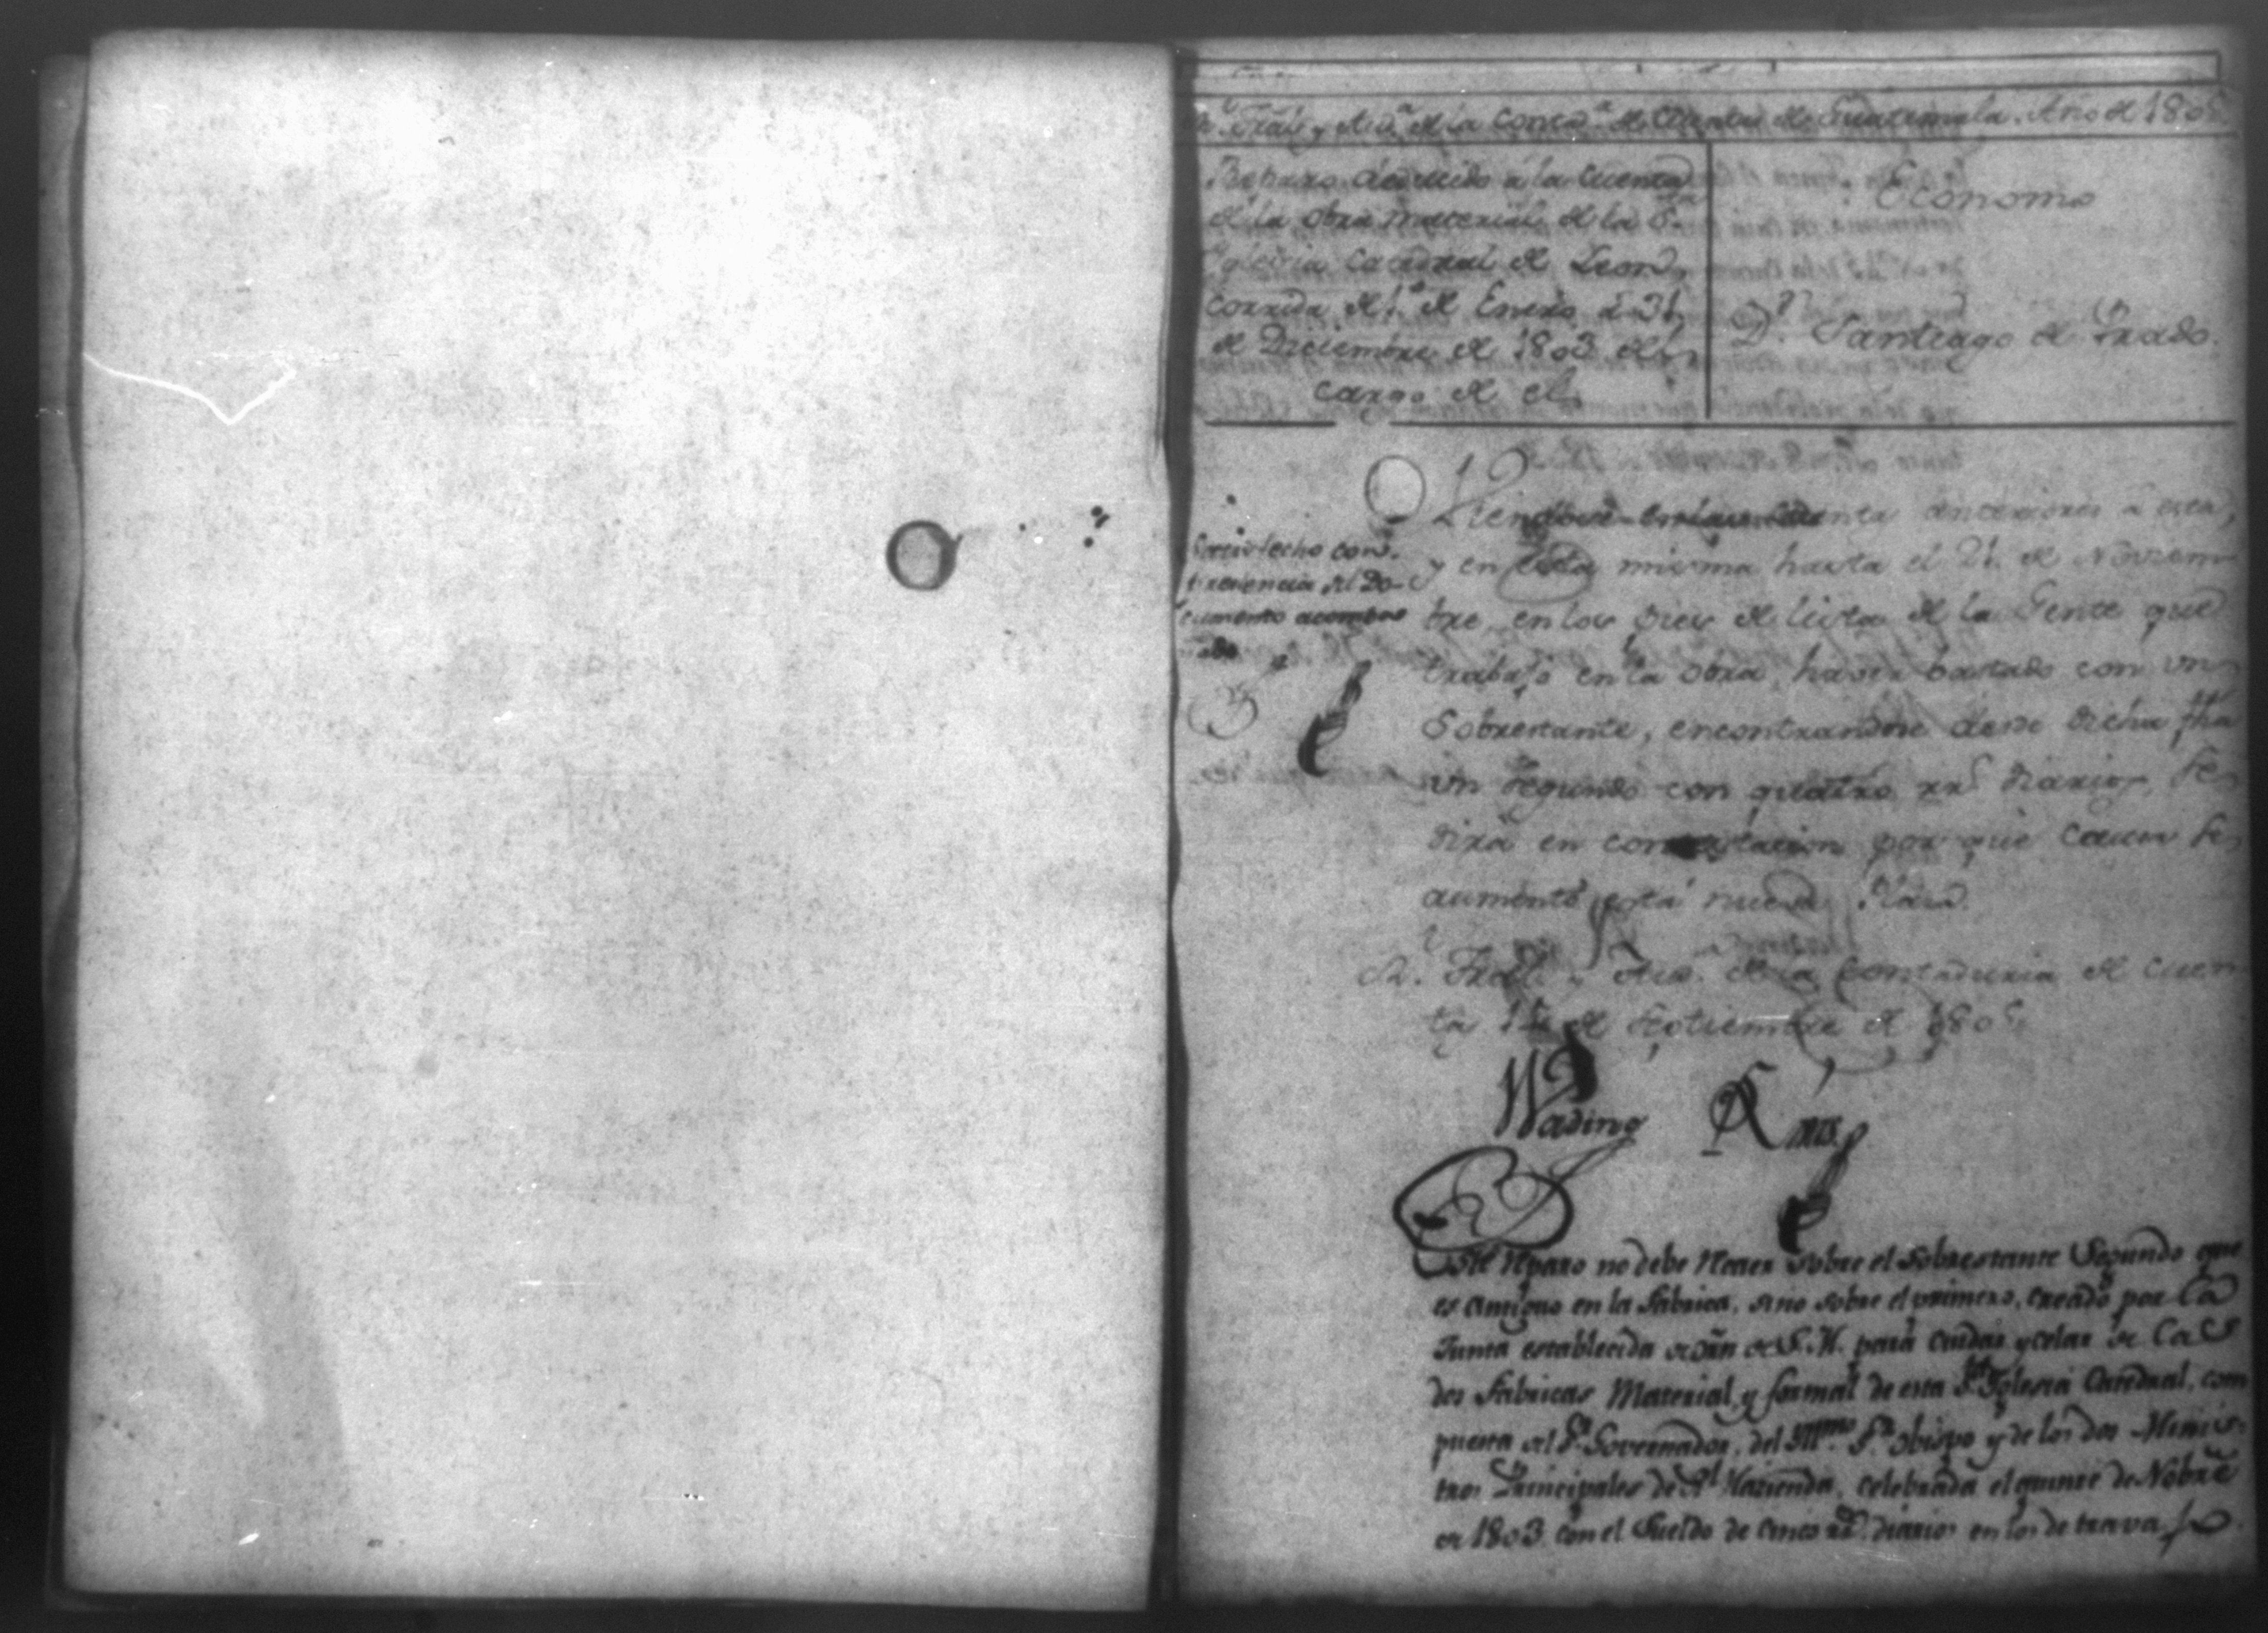 Rl. Tribl. y Auda. de la Conta. de Cuentas de Guatemala. Año de 1805
Reparo deducido à la Cuenta
de la obra material de la Sta.
Yglesia Catedral de Leon
corrida de 1.º de Enero à 31
de Diciembre de 1803 del
cargo de el
Economo
Dn. Santiago de Prado.
Viendose en las Cuentas anteriores à esta,
y en esta misma hasta el 21 de Noviem-
bre, en los pies de lista de la Gente que
trabajó en la obra, haver bastado con un
Sobrestante, encontrandose desde dicha fha
un segundo con quatro rrs. diarios, se
dirá en contextacion por que causa se
aumentó esta nueva Plaza.
Rl. Tribl. y Auda. de la Contaduria de Cuen-
tas de Septiembre de 1805.
Satisfecho con
presencia del Do-
cumento acompa
ñado
Wading
Este Reparo no debe Recaer sobre el Sobrestante Segundo que
es antiguo en la Fabrica, sino sobre el primero, creado por la
Junta establecida de orñ de S. M. para cuidar y celar de las
dos Fabricas Material, y formal de esta Sta. Yglesia Catedral, com
puesta del Sr. Governador, del Illmo. Sr. Obispo y de los dos Minis-
tros Principales de Rl. Hazienda, celebrada el quinse de Nobre.
de 1803 con el Sueldo de cinco rrs. diarios en los de travajo